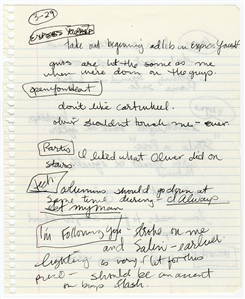 3-29
Express Yourself
take out beginning adlib in Express Yourself
girls are let the same as me
when we're down on the guys.
open your heart
don't like cartwheel.
oliver shouldn't touch me - ever.
Partis
I liked what Oliver did on
stairs
Sect:
should go down at
same time during - I Always
get my man
I'm Following You - strobe on me
and Salim - earlier.
lighting is very flat for this
piece - should be an accent
on bump flash.